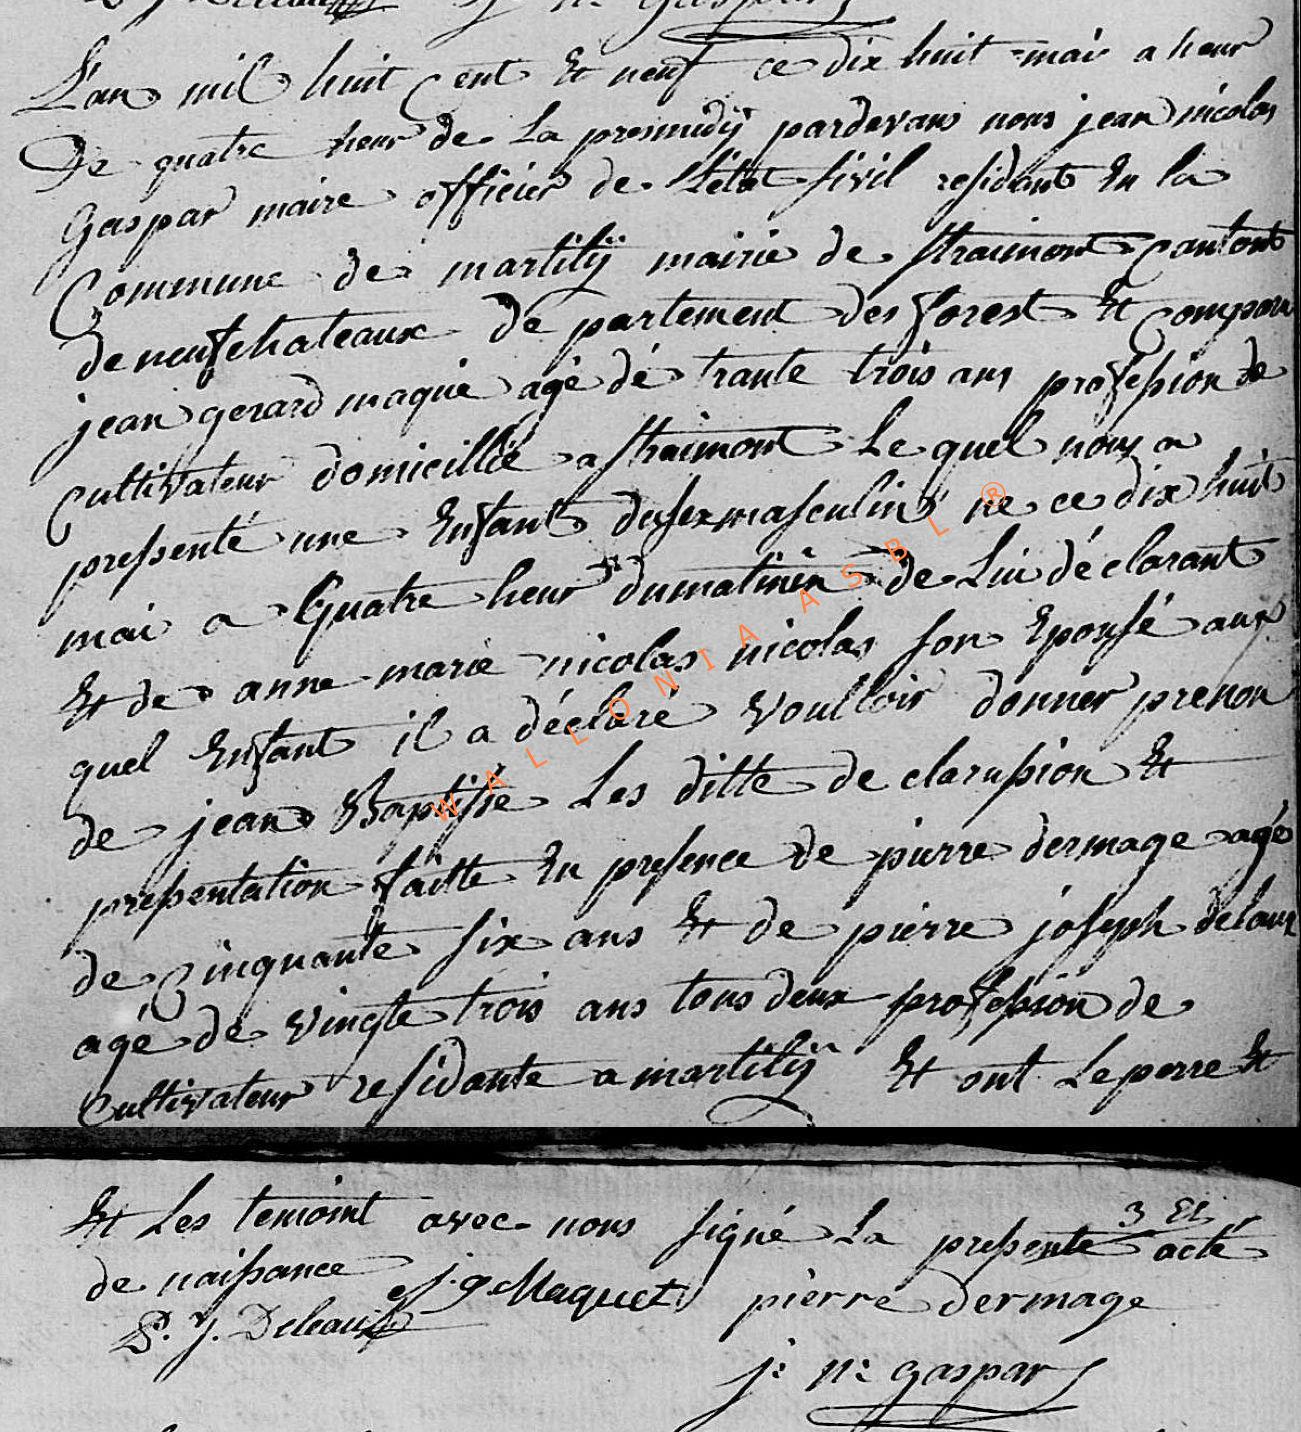 L'an mil huit Cent Et neuf ce dix huit mai a heur
De quatre heur de La presmidij pardevans nous jean nicolas
Gaspar maire officier de L'état sivil residant En la
Commune de martilij mairie de straimont Cantont
de neufchateaux de partement des forest Et Comparu
jean gerard maquie agé dé trante trois ans profession de
Cultivateur domicillié a straimont Le quel nous a
pressenté une Enfant du sex masculin né ce dix huit
mai a Quatre heur du matinin de Lui déclarant
Et de anne marie nicolas nicolas son Epousé aux
quel Enfant il a déclaré voulloir donner prenon
de jean Baptiste Les ditte de clarassion Et
pressentation faitte En presence de pierre dermage agé
de Cinquante six ans Et de pierre joseph delaux
agé de vingte trois ans tous deux profession de
Cultivateur residante a martilij Et ont Le perre Et
Et Les temoint avec nous signé La pressente acté
de naissance J. g Maquet pierre dermage
P. J. Deleau
j: n: gaspar
WALLONIA ASBL ®